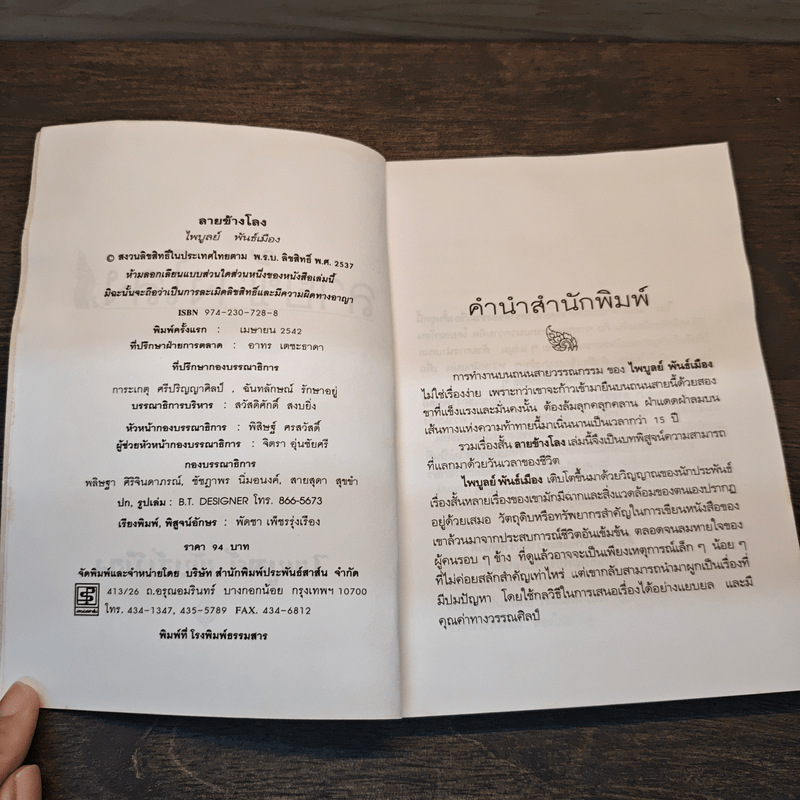 ลายช้างโลง
ไพบูลย์ พันธ์เมือง
© สงวนลิขสิทธิ์ในประเทศไทยตาม พ.ร.บ. ลิขสิทธิ์ พ.ศ. 2537
ห้ามลอกเลียนแบบส่วนใดส่วนหนึ่งของหนังสือเล่มนี้
มิฉะนั้นจะถือว่าเป็นการละเมิดลิขสิทธิ์และมีความผิดทางอาญา
ISBN 974-230-728-8
พิมพ์ครั้งแรก : เมษายน 2542
ที่ปรึกษาฝ่ายการตลาด : อาทร เตชะธาดา
ที่ปรึกษากองบรรณาธิการ
การะเกตุ ศรีปริญญาศิลป์ , ฉันทลักษณ์ รักษาอยู่
บรรณาธิการบริหาร : สวัสดิศักดิ์ สงบยิ่ง
หัวหน้ากองบรรณาธิการ : พิสิษฐ์ ศรสวัสดิ์
ผู้ช่วยหัวหน้ากองบรรณาธิการ : จิตรา อุ่นชัยศรี
กองบรรณาธิการ
พลิษฐา ศิริจินดาภรณ์, ชัชฎาพร นิ่มอนงค์, สายสุดา สุขขำ
ปก, รูปเล่ม : B.T. DESIGNER โทร. 866-5673
เรียงพิมพ์, พิสูจน์อักษร : พัดชา เพ็ชรรุ่งเรือง
ราคา 94 บาท
จัดพิมพ์และจำหน่ายโดย บริษัท สำนักพิมพ์ประพันธ์สาส์น จำกัด
413/26 ถ.อรุณอมรินทร์ บางกอกน้อย กรุงเทพฯ 10700
โทร. 434-1347, 435-5789 FAX. 434-6812
พิมพ์ที่ โรงพิมพ์ธรรมสาร
คำนำสำนักพิมพ์
การทำงานบนถนนสายวรรณกรรม ของ ไพบูลย์ พันธ์เมือง
ไม่ใช่เรื่องง่าย เพราะกว่าเขาจะก้าวเข้ามายืนบนถนนสายนี้ด้วยสอง
ขาที่แข็งแรงและมั่นคงนั้น ต้องล้มลุกคลุกคลาน ฝ่าแดดฝ่าลมบน
เส้นทางแห่งความท้าทายนี้มาเนิ่นนานเป็นเวลากว่า 15 ปี
รวมเรื่องสั้น ลายช้างโลง เล่มนี้จึงเป็นบทพิสูจน์ความสามารถ
ที่แลกมาด้วยวันเวลาของชีวิต
ไพบูลย์ พันธ์เมือง เติบโตขึ้นมาด้วยวิญญาณของนักประพันธ์
เรื่องสั้นหลายเรื่องของเขามักมีฉากและสิ่งแวดล้อมของตนเองปรากฏ
อยู่ด้วยเสมอ วัตถุดิบหรือทรัพยากรสำคัญในการเขียนหนังสือของ
เขาล้วนมาจากประสบการณ์ชีวิตอันเข้มข้น ตลอดจนลมหายใจของ
ผู้คนรอบ ๆ ข้าง ที่ดูแล้วอาจจะเป็นเพียงเหตุการณ์เล็ก ๆ น้อย ๆ
ที่ไม่ค่อยสลักสำคัญเท่าไหร่ แต่เขากลับสามารถนำมาผูกเป็นเรื่องที่
มีปมปัญหา โดยใช้กลวิธีในการเสนอเรื่องได้อย่างแยบยล และมี
คุณค่าทางวรรณศิลป์